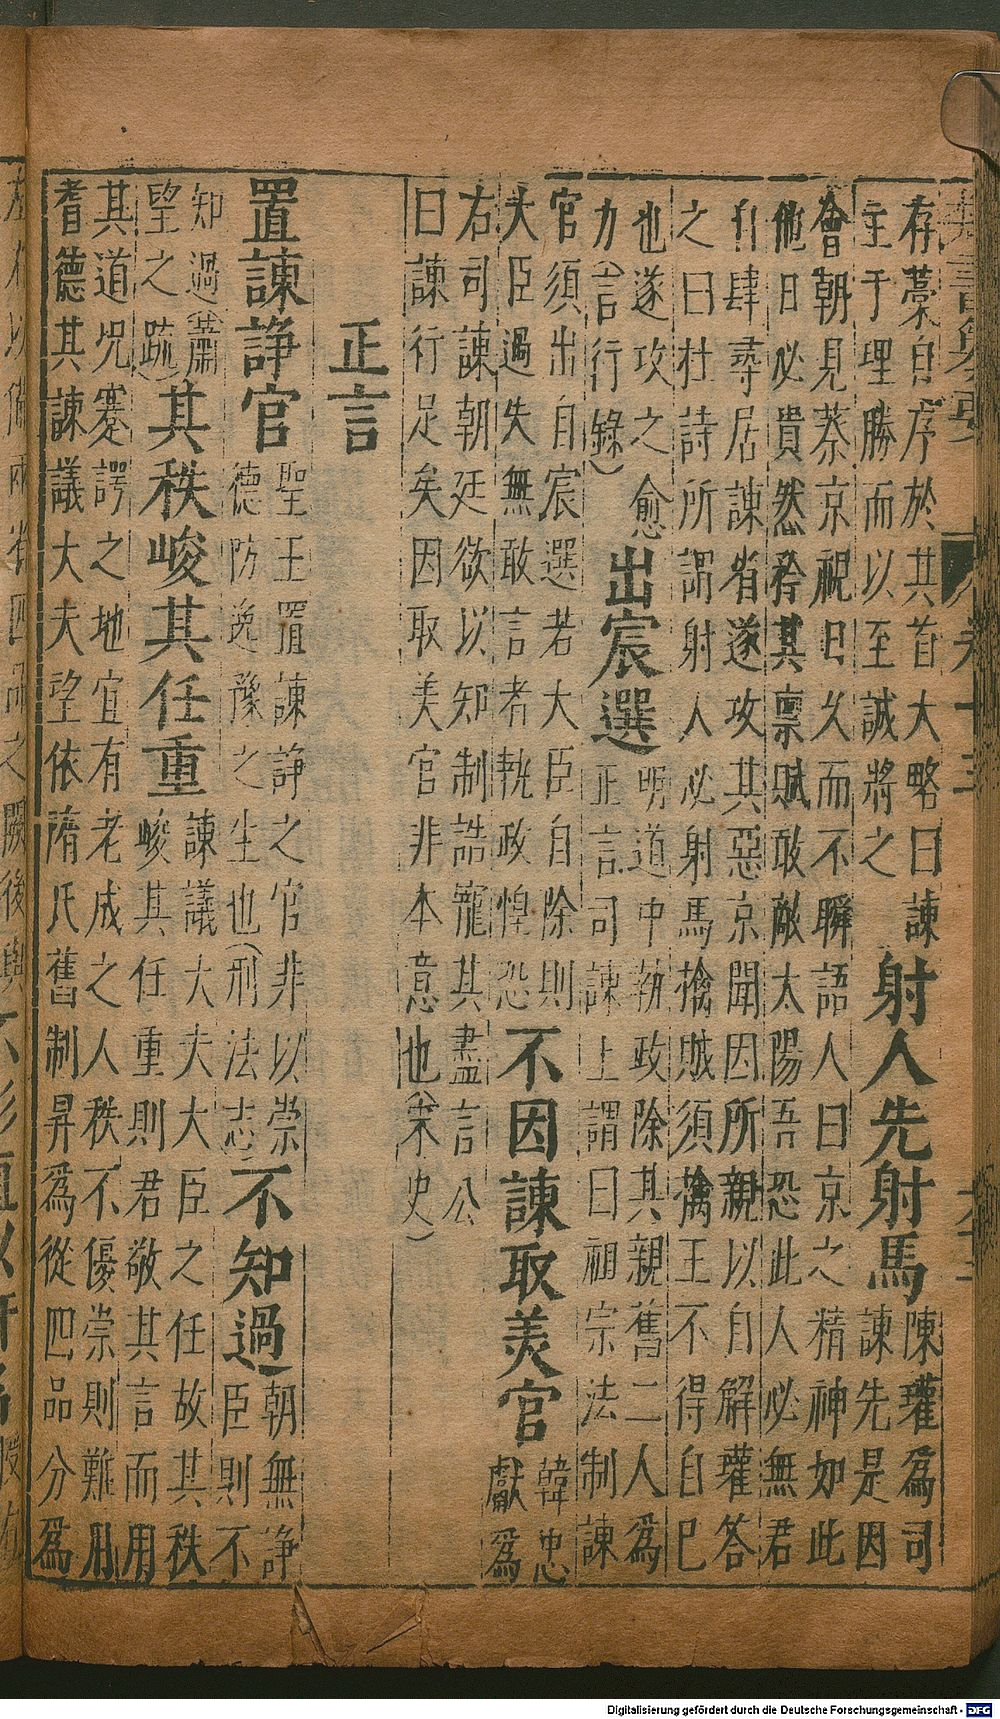 存藁自序於其首大略曰諫
主于理勝而以至誠將之
射人先射馬
陳瓘爲司
諫先是因
會朝見蔡京視日久而不瞬語人曰京之精神如此
他日必貴然矜其禀賦敢敵太陽吾恐此人必無君
自肆尋居諫省遂攻其惡京聞因所親以自解瓘答
之曰杜詩所謂射人必射馬擒賊須擒王不得自已
也遂攻之愈
力(言行錄)
出宸選
明道中執政除其親舊二人爲
正言司諫上謂曰祖宗法制諫
官須出自宸選若大臣自除則
大臣過失無敢言者執政惶恐
不因諫取美官
韓忠
獻爲
右司諫朝廷欲以知制誥寵其盡言公
曰諫行足矣因取美官非本意也(宋史)
正言
置諫諍官
聖王置諫諍之官非以崇
德防逸豫之生也(刑法志)
不知過
朝無諍
臣則不
知過(蕭
望之疏)
其秩峻其任重
諫議大夫大臣之任故其秩
峻其任重則君敬其言而用
其道况蹇諤之地宜有老成之人秩不優崇則難用
耆德其諫議大夫望依隋氏舊制昇爲從四品分爲
Digitalisierung gefördert durch die Deutsche Forschungsgemeinschaft - DFG